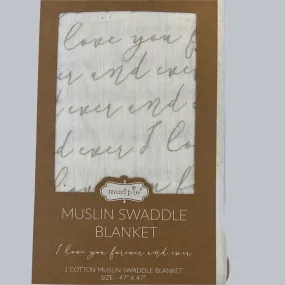 love you f
er and ever
d ever and
ever I lo
d ever
mudpie
MUSLIN SWADDLE
BLANKET
I love you forever and ever
1 COTTON MUSLIN SWADDLE BLANKET
SIZE - 47" X 47"